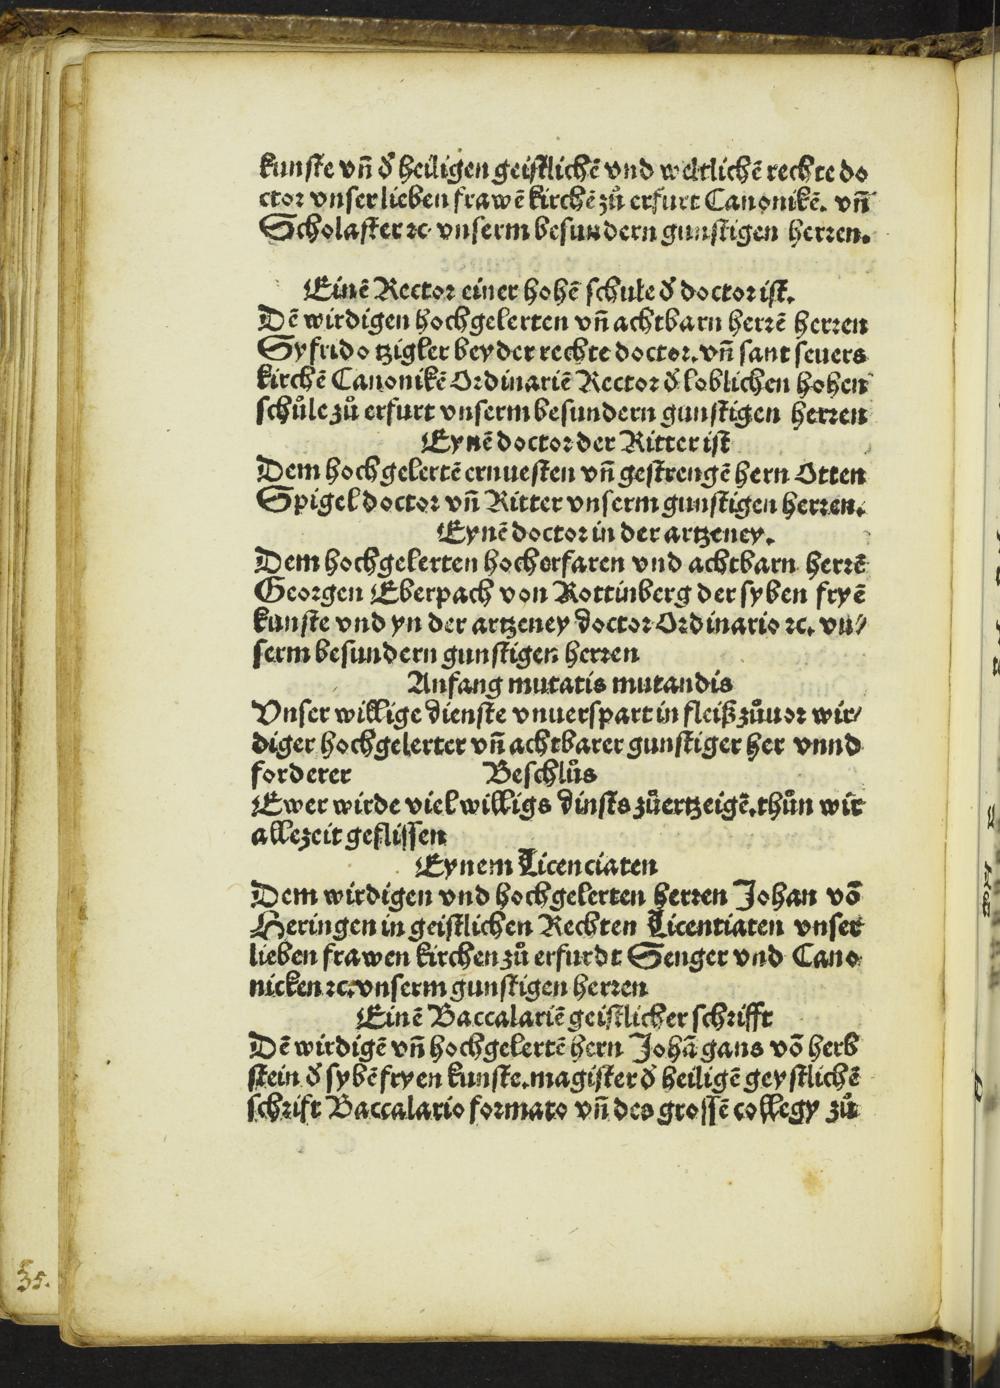 kunste vn̄ d̕ heiligen geistlichē vnd weltlichē rechte do
ctor vnser lieben frawē kirchē zů erfurt Canonikē. vn̄
Scholaster ꝛc vnserm besundern gunstigen herren.
Einē Rector einer hohē schule d̕ doctor ist.
Dē wirdigen hochgelerten vn̄ achtbarn herrē herren
Syfrido tzigler beyder rechte doctor. vn̄ sant seuers
kirchē Canonikē Ordinariē Rector d̕ loblichen hohen
schůle zů erfurt vnserm besundern gunstigen herren
Eynē doctor der Ritter ist
Dem hochgelertē ernuesten vn̄ gestrengē hern Otten
Spigel doctor vn̄ Ritter vnserm gunstigen herren.
Eynē doctor in der artzeney.
Dem hochgelerten hocherfaren vnd achtbarn herrē
Georgen Eberpach von Rottinberg der syben fryē
kunste vnd yn der artzeney doctor Ordinario ꝛc. vn⸗
serm besundern gunstigen herren
Anfang mutatis mutandis
Vnser willige dienste vnuerspart in fleiß zůuor wir⸗
diger hochgelerter vn̄ achtbarer gunstiger her vnnd
forderer Beschlůs
Ewer wirde viel willigs dinsts zůertzeigē. thůn wir
allezeit geflissen
Eynem Licenciaten
Dem wirdigen vnd hochgelerten herren Johan vō
Heringen in geistlichen Rechten Licentiaten vnser
lieben frawen kirchen zů erfurdt Senger vnd Cano
nicken ꝛc. vnserm gunstigen herren
Einē Baccalariē geistlicher schrifft
Dē wirdigē vn̄ hochgelertē hern Johā gans vō herb
stein d̕ sybē fryen kunste. magister d̕ heiligē geystlichē
schrift Baccalario formato vn̄ des grossē collegy zů
35.